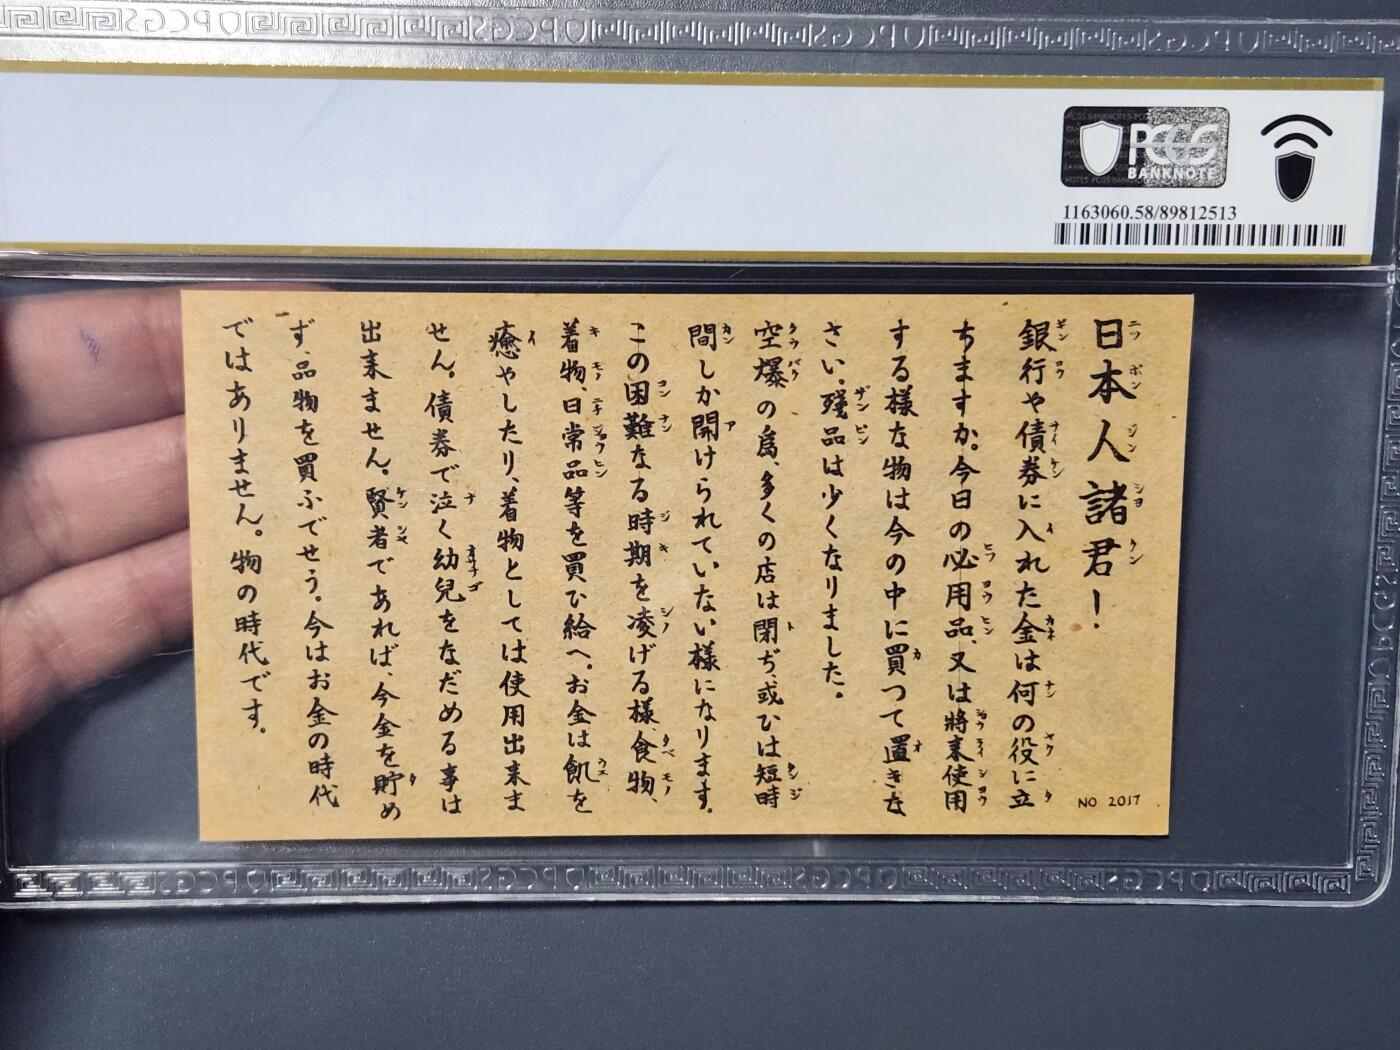 PCGS
BANKNOTE
1163060.58/89812513
日本人諸君！
銀行や債券に入れた金は何の役に立
ちますか。今日の必用品、又は將来使用
する様な物は今の中に買つて置きな
さい。残品は少くなりました。
空爆の為、多くの店は閉ぢ、或ひは短時
間しか開けられていない様になります。
この困難なる時期を凌げる様、食物、
着物、日常品等を買ひ給へ。お金は飢を
癒やしたり、着物としては使用出来ま
せん。債券で泣く幼兒をなだめる事は
出来ません。賢者であれば、今金を貯め
ず、品物を買ふでせう。今はお金の時代
ではありません。物の時代です。
NO 2017